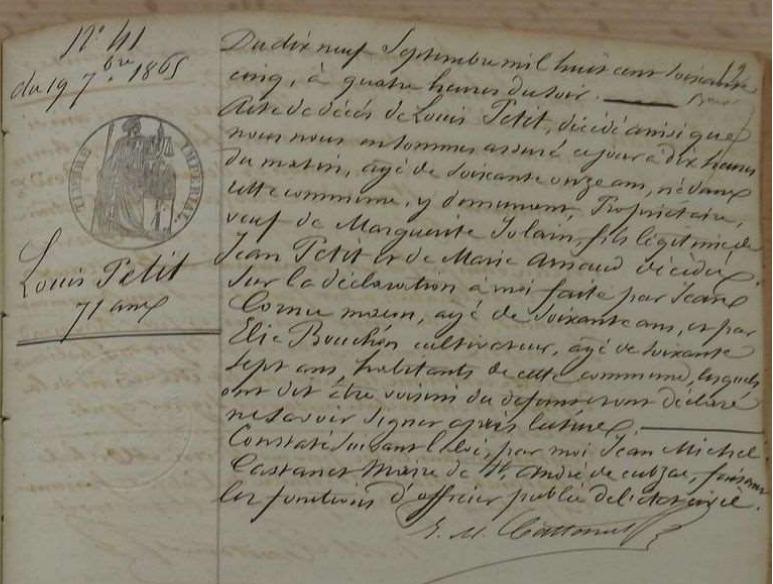 N° 41
du 19 7bre 1865
TIMBRE IMPERIAL
Louis Petit
71 ans
19
Du dix neuf Septembre mil huit cent soixante
cinq, à quatre heures du soir.
Acte de décès de Louis Petit, décédé ainsi que
nous nous en sommes assuré ce jour à dix heures
du matin, agé de soixante onze ans, né dans
cette commune, y demeurant, Propriétaire,
veuf de Marguerite Jolain, fils légitime de
Jean Petit et de Marie Arnaud décédés.
Sur la déclaration à moi faite par Jean
Cornu maçon, agé de soixante ans, et par
Elie Bouchon cultivateur, agé de soixante
sept ans, habitants de cette commune, lesquels
ont dit être voisins du défunt et ont déclaré
ne savoir signer après lecture.
Constaté suivant la loi, par moi Jean Michel
Castanet Maire de St. André de cubzac, faisant
les fonctions d'officier public de l'état civil.
J. M. Castanet